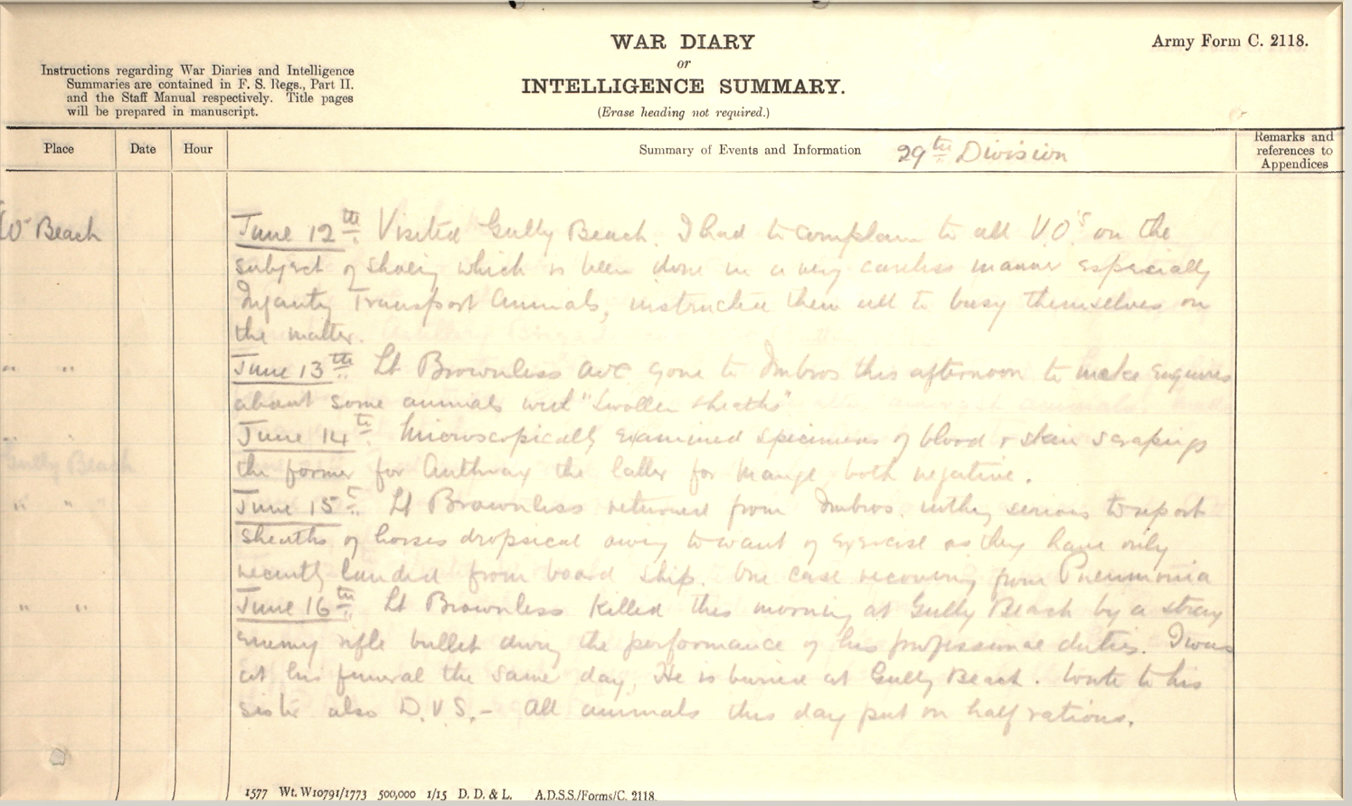 WAR DIARY
or
INTELLIGENCE SUMMARY.
(Erase heading not required.)
Army Form C. 2118.
Instructions regarding War Diaries and Intelligence
Summaries are contained in F. S. Regs., Part II.
and the Staff Manual respectively. Title pages
will be prepared in manuscript.
Place
Date
Hour
Summary of Events and Information
29th Division
Remarks and
references to
Appendices
W Beach
June 12th. Visited Gully Beach. I had to complain to all V.O's on the
subject of shoeing which is been done in a very careless manner especially
Infantry Transport Animals, instructed them all to busy themselves on
the matter.
" "
June 13th. Lt Brownless AVC gone to Imbros this afternoon to make enquiries
about some animals with "Swollen sheaths"
" "
June 14th. Microscopically examined specimens of blood & skin scrapings
Gully Beach
the former for Anthrax the latter for Mange both negative.
" " "
June 15t. Lt Brownless returned from Imbros. nothing serious to report
Sheaths of horses dropsical owing to want of exercise as they have only
recently landed from board ship. One case recovering from Pneumonia
" "
June 16th. Lt Brownless killed this morning at Gully Beach by a stray
enemy rifle bullet during the performance of his professional duties. I was
at his funeral the same day, He is buried at Gully Beach. Wrote to his
sister also D.V.S. - All animals this day put on half rations.
1577 Wt. W10791/1773 500,000 1/15 D. D. & L. A.D.S.S./Forms/C. 2118.